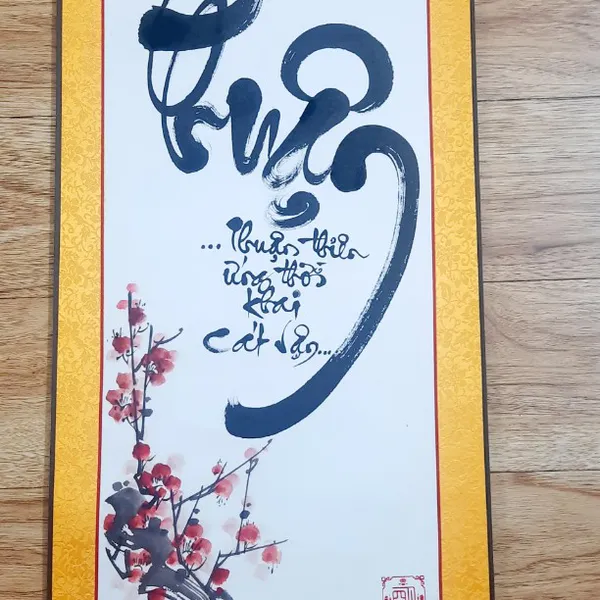 Thuận
... Thuận thiên
ứng thời
khai
cát vận...